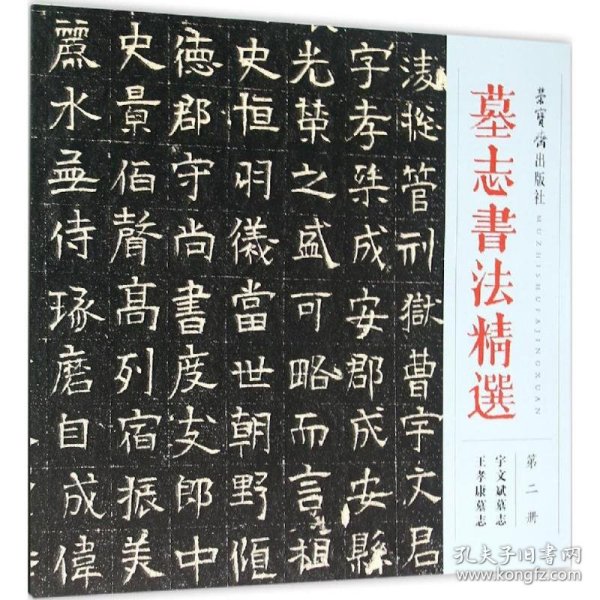 榮寶齋出版社
墓志書法精選
MUZHISHUFAJINGXUAN
第二册
宇文斌墓志
王孝康墓志
管刑獄曹宇文君
字孝桀成安郡成安縣
光榮之盛可略而言祖
史恒羽儀當世朝野傾
德郡守尚書度支郎中
史景伯聲高列宿振美
麗水孟侍琢磨自成偉
孔夫子旧书网
www.kongfz.com